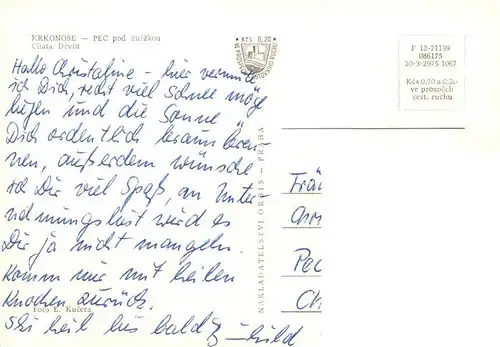 KRKONOŠE — PEC pod Sněžkou
Chata Děvín
Kčs 0,20
F 12-71139
086175
20-3-2975 1067
Kčs 0,70 a 0,20
ve prospěch
cest. ruchu
Hallo Christafine – hier vermute
ich Dich, recht viel Schnee möge
liegen und die Sonne
Dich ordentlich braun bren-
nen, außerdem wünsche
ich Dir viel Spaß, an Unter-
nehmungslust wird es
Dir ja nicht mangeln.
Komm nur mit heilen
Knochen zurück.
Ski heil bis bald
Foto E. Kučera
NAKLADATELSTVÍ ORBIS — PRAHA
Fräu
Chri
Pec
Ch